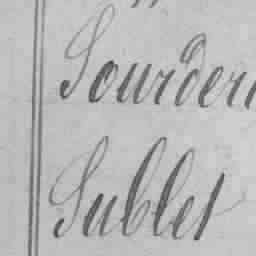 Sourderi
Sublet